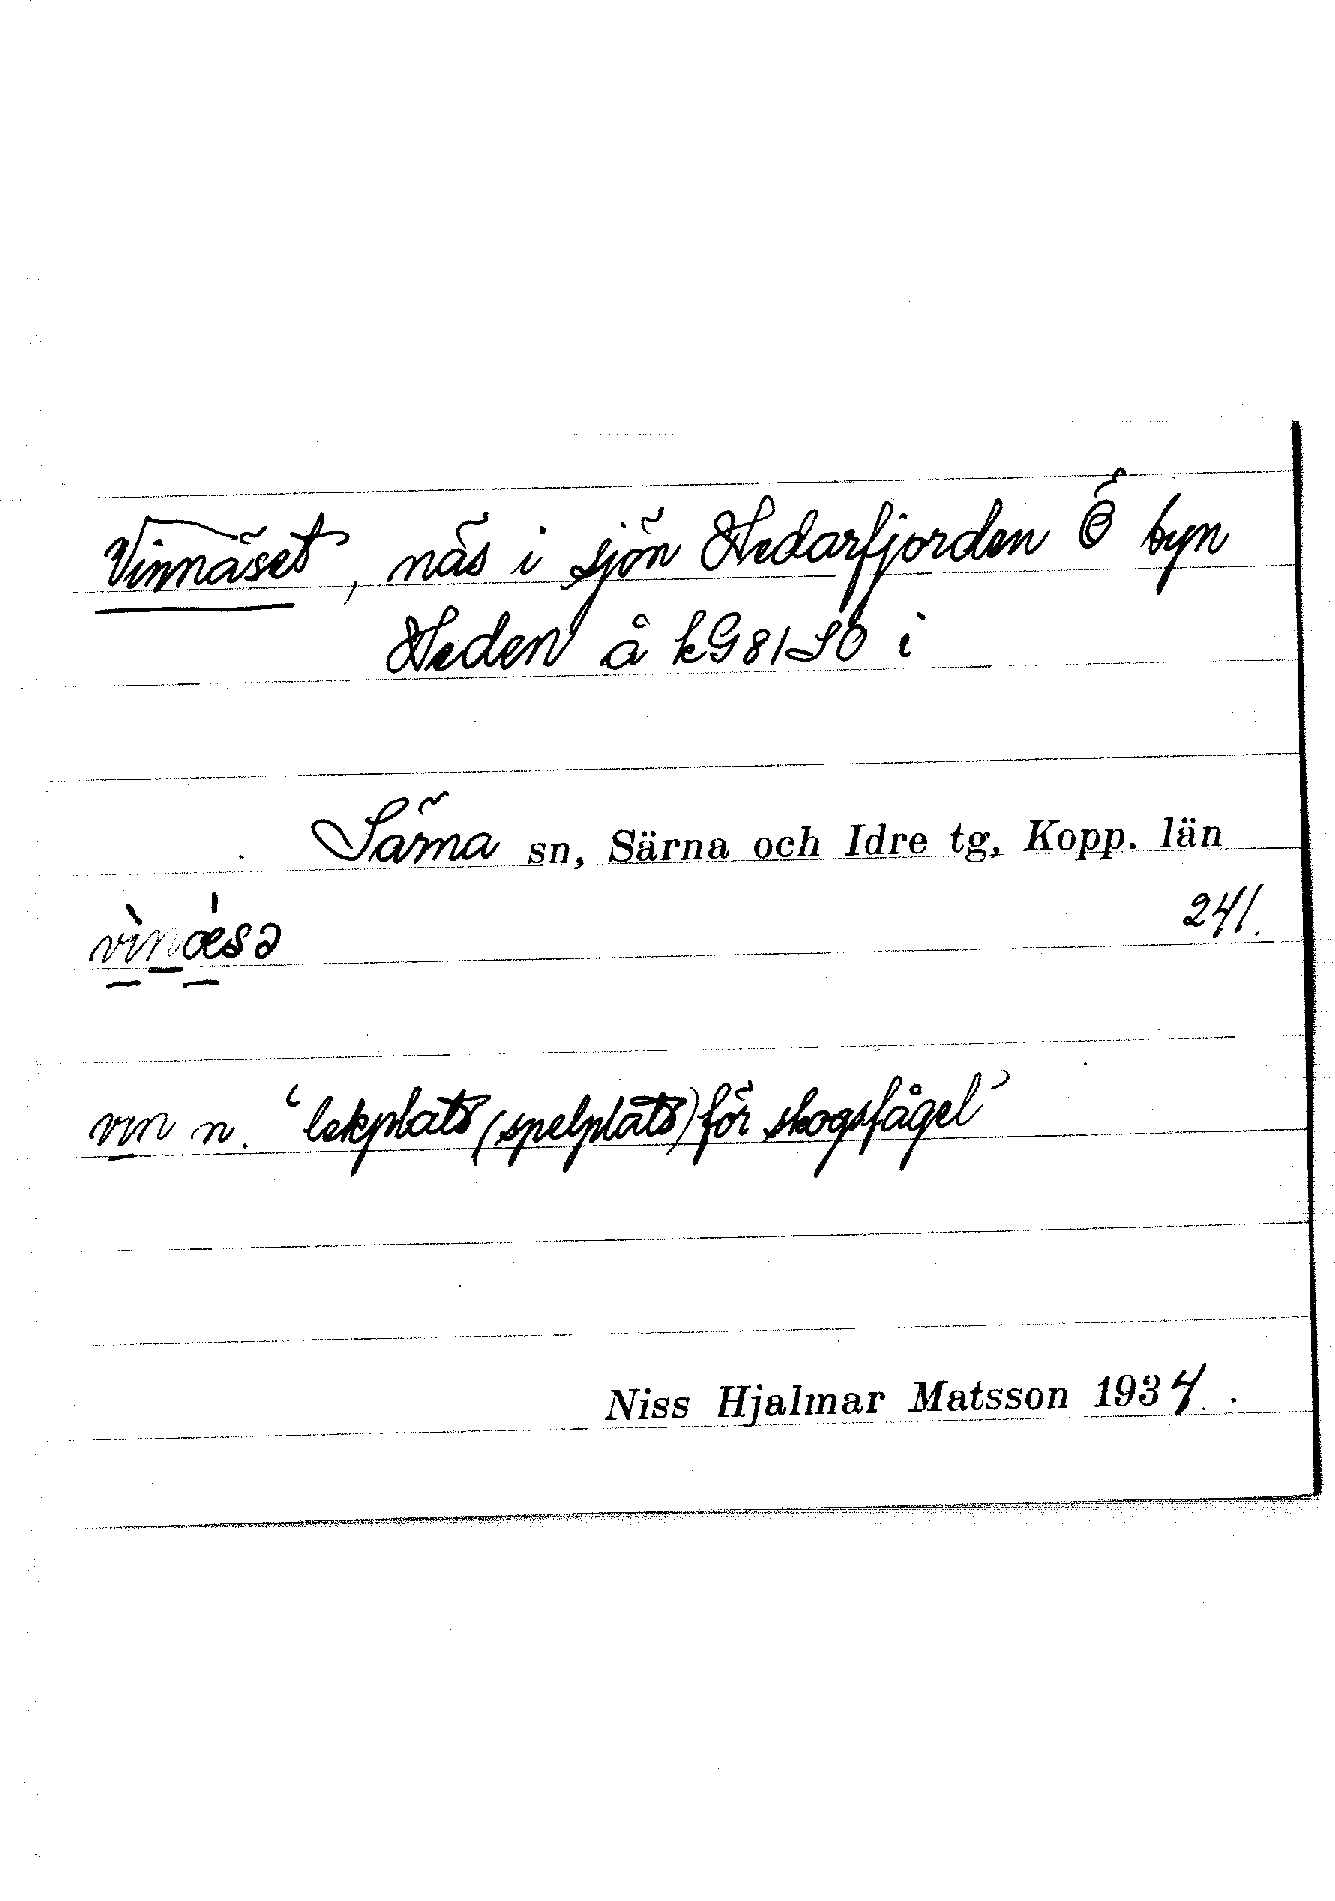 Vinnäset, näs i sjön Hedarfjorden Ö byn
Heden å kG81SÖ i
Särna sn, Särna och Idre tg, Kopp. län
vìnǽsə 241.
vɪn n. ‘lekplats (spelplats) för skogsfågel’
Niss Hjalmar Matsson 1934.